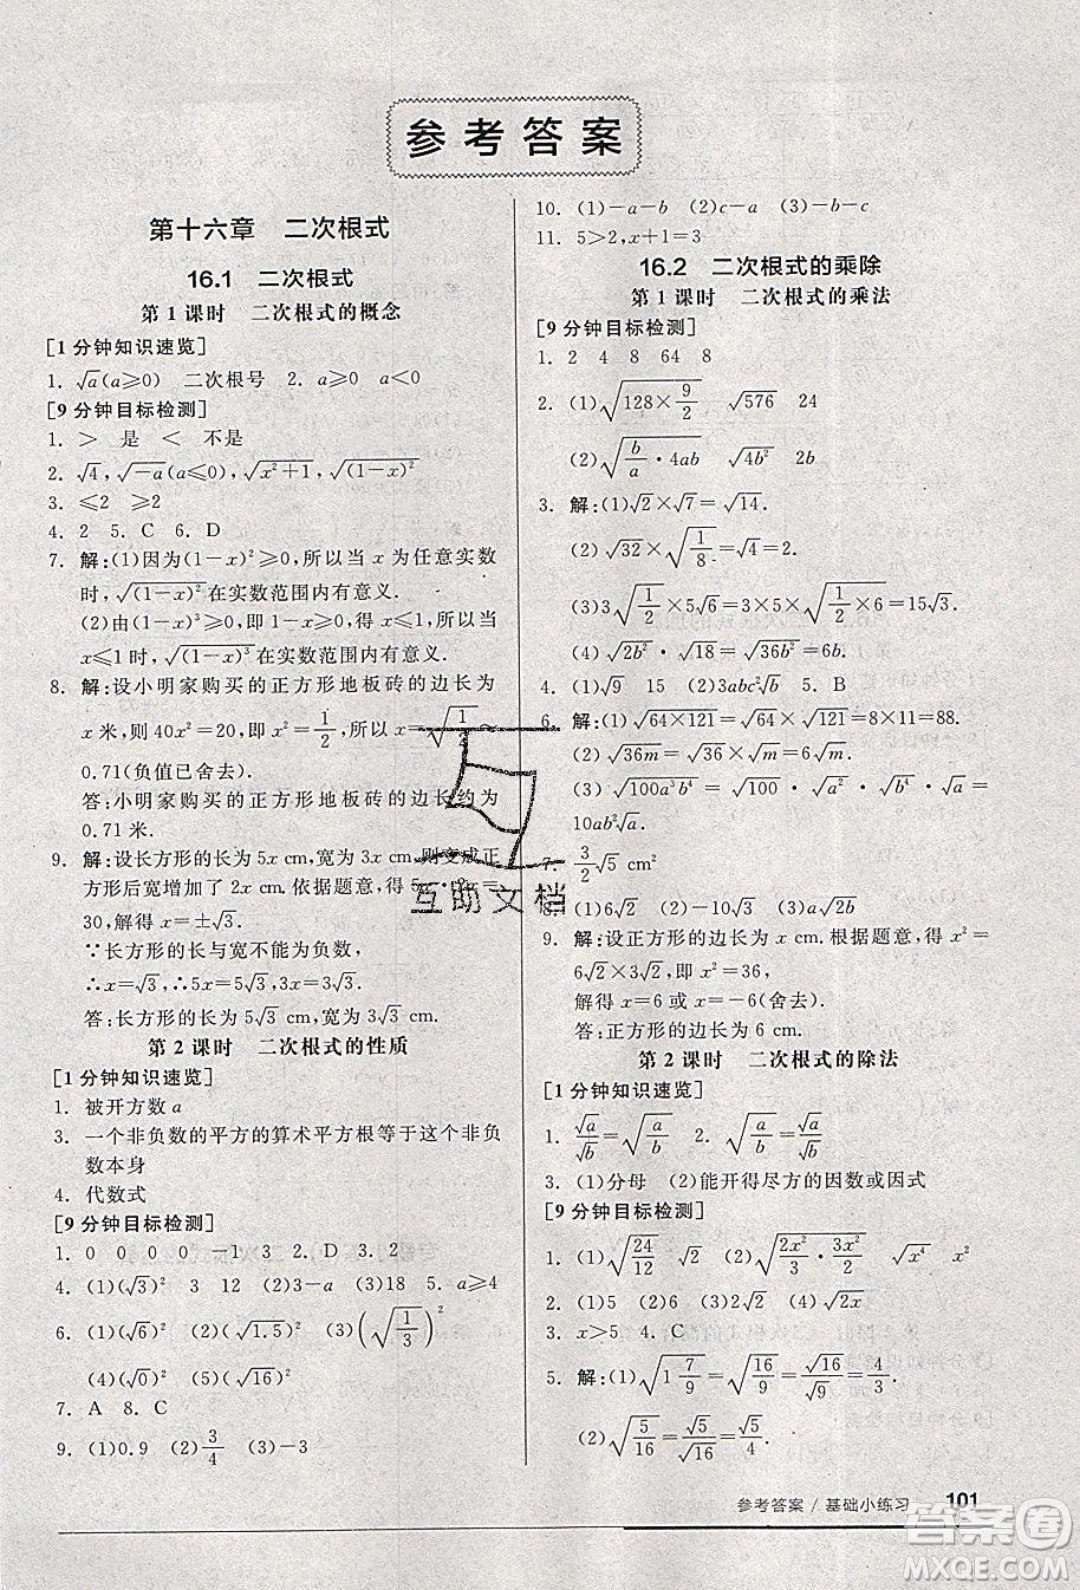 参考答案
第十六章 二次根式
16.1 二次根式
第1课时 二次根式的概念
[1分钟知识速览]
1. √a(a≥0) 二次根号 2. a≥0 a<0
[9分钟目标检测]
1. > 是 < 不是
2. √4,√(-a)(a≤0),√(x²+1),√((1-x)²)
3. ≤2 ≥2
4. 2 5. C 6. D
7. 解:(1)因为(1-x)²≥0,所以当 x 为任意实数
时,√((1-x)²)在实数范围内有意义.
(2)由(1-x)³≥0,即 1-x≥0,得 x≤1.当
x≤1时,√((1-x)³)在实数范围内有意义.
8. 解:设小明家购买的正方形地板砖的边长为
x 米,则 40x²=20,即 x²=1/2,所以 x=√(1/2)≈
0.71(负值已舍去).
答:小明家购买的正方形地板砖的边长约为
0.71 米.
9. 解:设长方形的长为 5x cm,宽为 3x cm.则变成正
方形后宽增加了 2x cm.依据题意,得 5x · 2x =
30,解得 x=±√3.
∵长方形的长与宽不能为负数,
∴x=√3,∴5x=5√3,3x=3√3.
答:长方形的长为 5√3 cm,宽为 3√3 cm.
第2课时 二次根式的性质
[1分钟知识速览]
1. 被开方数 a
3. 一个非负数的平方的算术平方根等于这个非负
数本身
4. 代数式
[9分钟目标检测]
1. 0 0 0 0 -1 3 2. D 3. 2
4. (1)(√3)² 3 12 (2)3-a (3)18 5. a≥4
6. (1)(√6)² (2)(√1.5)² (3)(√(1/3))²
(4)(√0)² (5)(√16)²
7. A 8. C
9. (1)0.9 (2)3/4 (3)-3
10. (1)-a-b (2)c-a (3)-b-c
11. 5>2,x+1=3
16.2 二次根式的乘除
第1课时 二次根式的乘法
[9分钟目标检测]
1. 2 4 8 64 8
2. (1)√(128×9/2) √576 24
(2)√(b/a·4ab) √(4b²) 2b
3. 解:(1)√2×√7=√14.
(2)√32×√(1/8)=√4=2.
(3)3√(1/2)×5√6=3×5×√(1/2×6)=15√3.
(4)√(2b²)·√18=√(36b²)=6b.
4. (1)√9 15 (2)3abc²√b 5. B
6. 解:(1)√(64×121)=√64×√121=8×11=88.
(2)√(36m)=√36×√m=6√m.
(3)√(100a³b⁴)=√100·√a²·√b⁴·√a=
10ab²√a.
7. 3/2√5 cm²
8. (1)6√2 (2)-10√2 (3)a√(2b)
9. 解:设正方形的边长为 x cm.根据题意,得 x²=
6√2×3√2,即 x²=36,
解得 x=6 或 x=-6(舍去).
答:正方形的边长为 6 cm.
第2课时 二次根式的除法
[1分钟知识速览]
1. √a/√b=√(a/b) 2. √(a/b)=√a/√b
3. (1)分母 (2)能开得尽方的因数或因式
[9分钟目标检测]
1. (1)√(24/12) √2 (2)√(2x²/3·3x²/2) √x⁴ x²
2. (1)5 (2)2 (3)2√2 (4)√(2x)
3. x>5 4. C
5. 解:(1)√(1 7/9)=√(16/9)=√16/√9=4/3.
(2)√(5/16)=√5/√16=√5/4.
参考答案 / 基础小练习 101
互助文档
答案圈
MXQE.COM